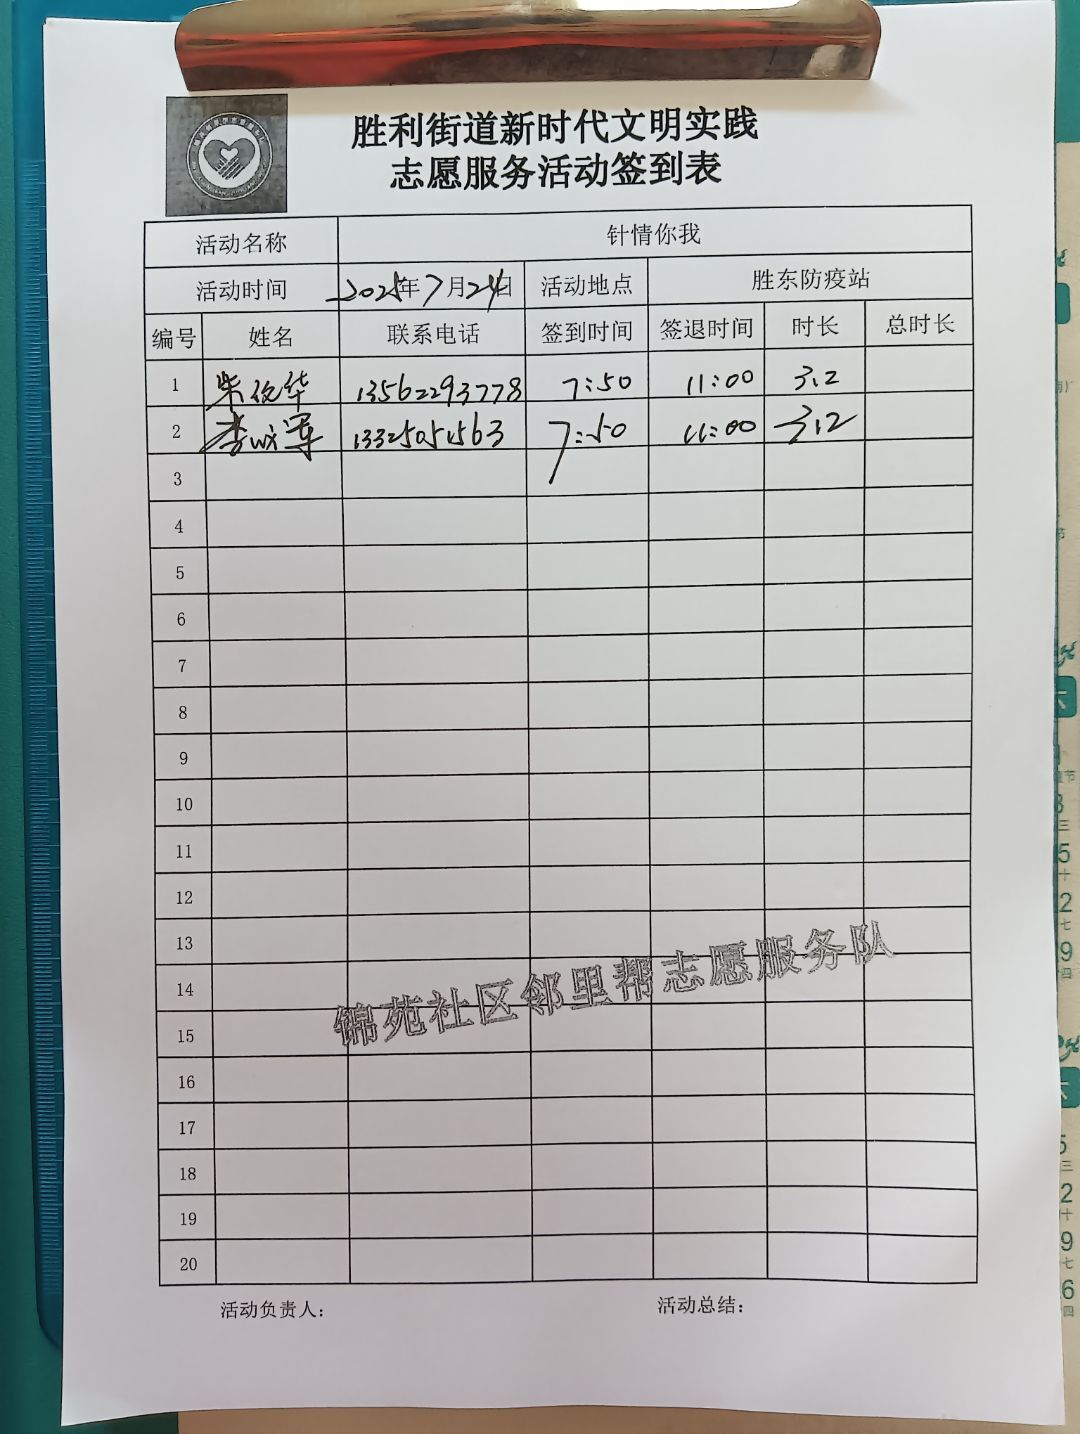 胜利街道新时代文明实践
志愿服务活动签到表
活动名称 针情你我
活动时间 2025年7月24日 活动地点 胜东防疫站
编号 姓名 联系电话 签到时间 签退时间 时长 总时长
1 朱俊华 13562293778 7:50 11:00 3.2
2 李 军 13325051563 7:50 11:00 3.2
3
4
5
6
7
8
9
10
11
12
13
14
15
16
17
18
19
20
锦苑社区邻里帮志愿服务队
活动负责人: 活动总结: